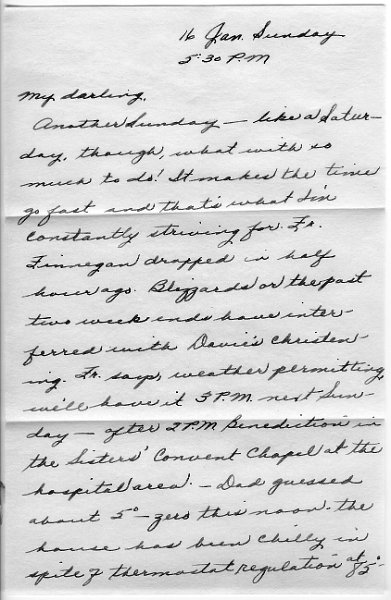 16 Jan. Sunday
5:30 P.M
My darling,
Another Sunday – like a Satur-
day, though, what with so
much to do! It makes the time
go fast and that's what I'm
constantly striving for. Fr.
Finnegan dropped in half
hour ago. Blizzards on the past
two week ends have inter-
ferred with Davie's christen-
ing. Fr. says, weather permitting
we'll have it 3 P.M. next Sun-
day – after 2 P.M Benediction in
the Sisters' Convent Chapel at the
hospital area. – Dad guessed
about 5° – zero this noon. The
house has been chilly in
spite of thermostat regulation at 85°